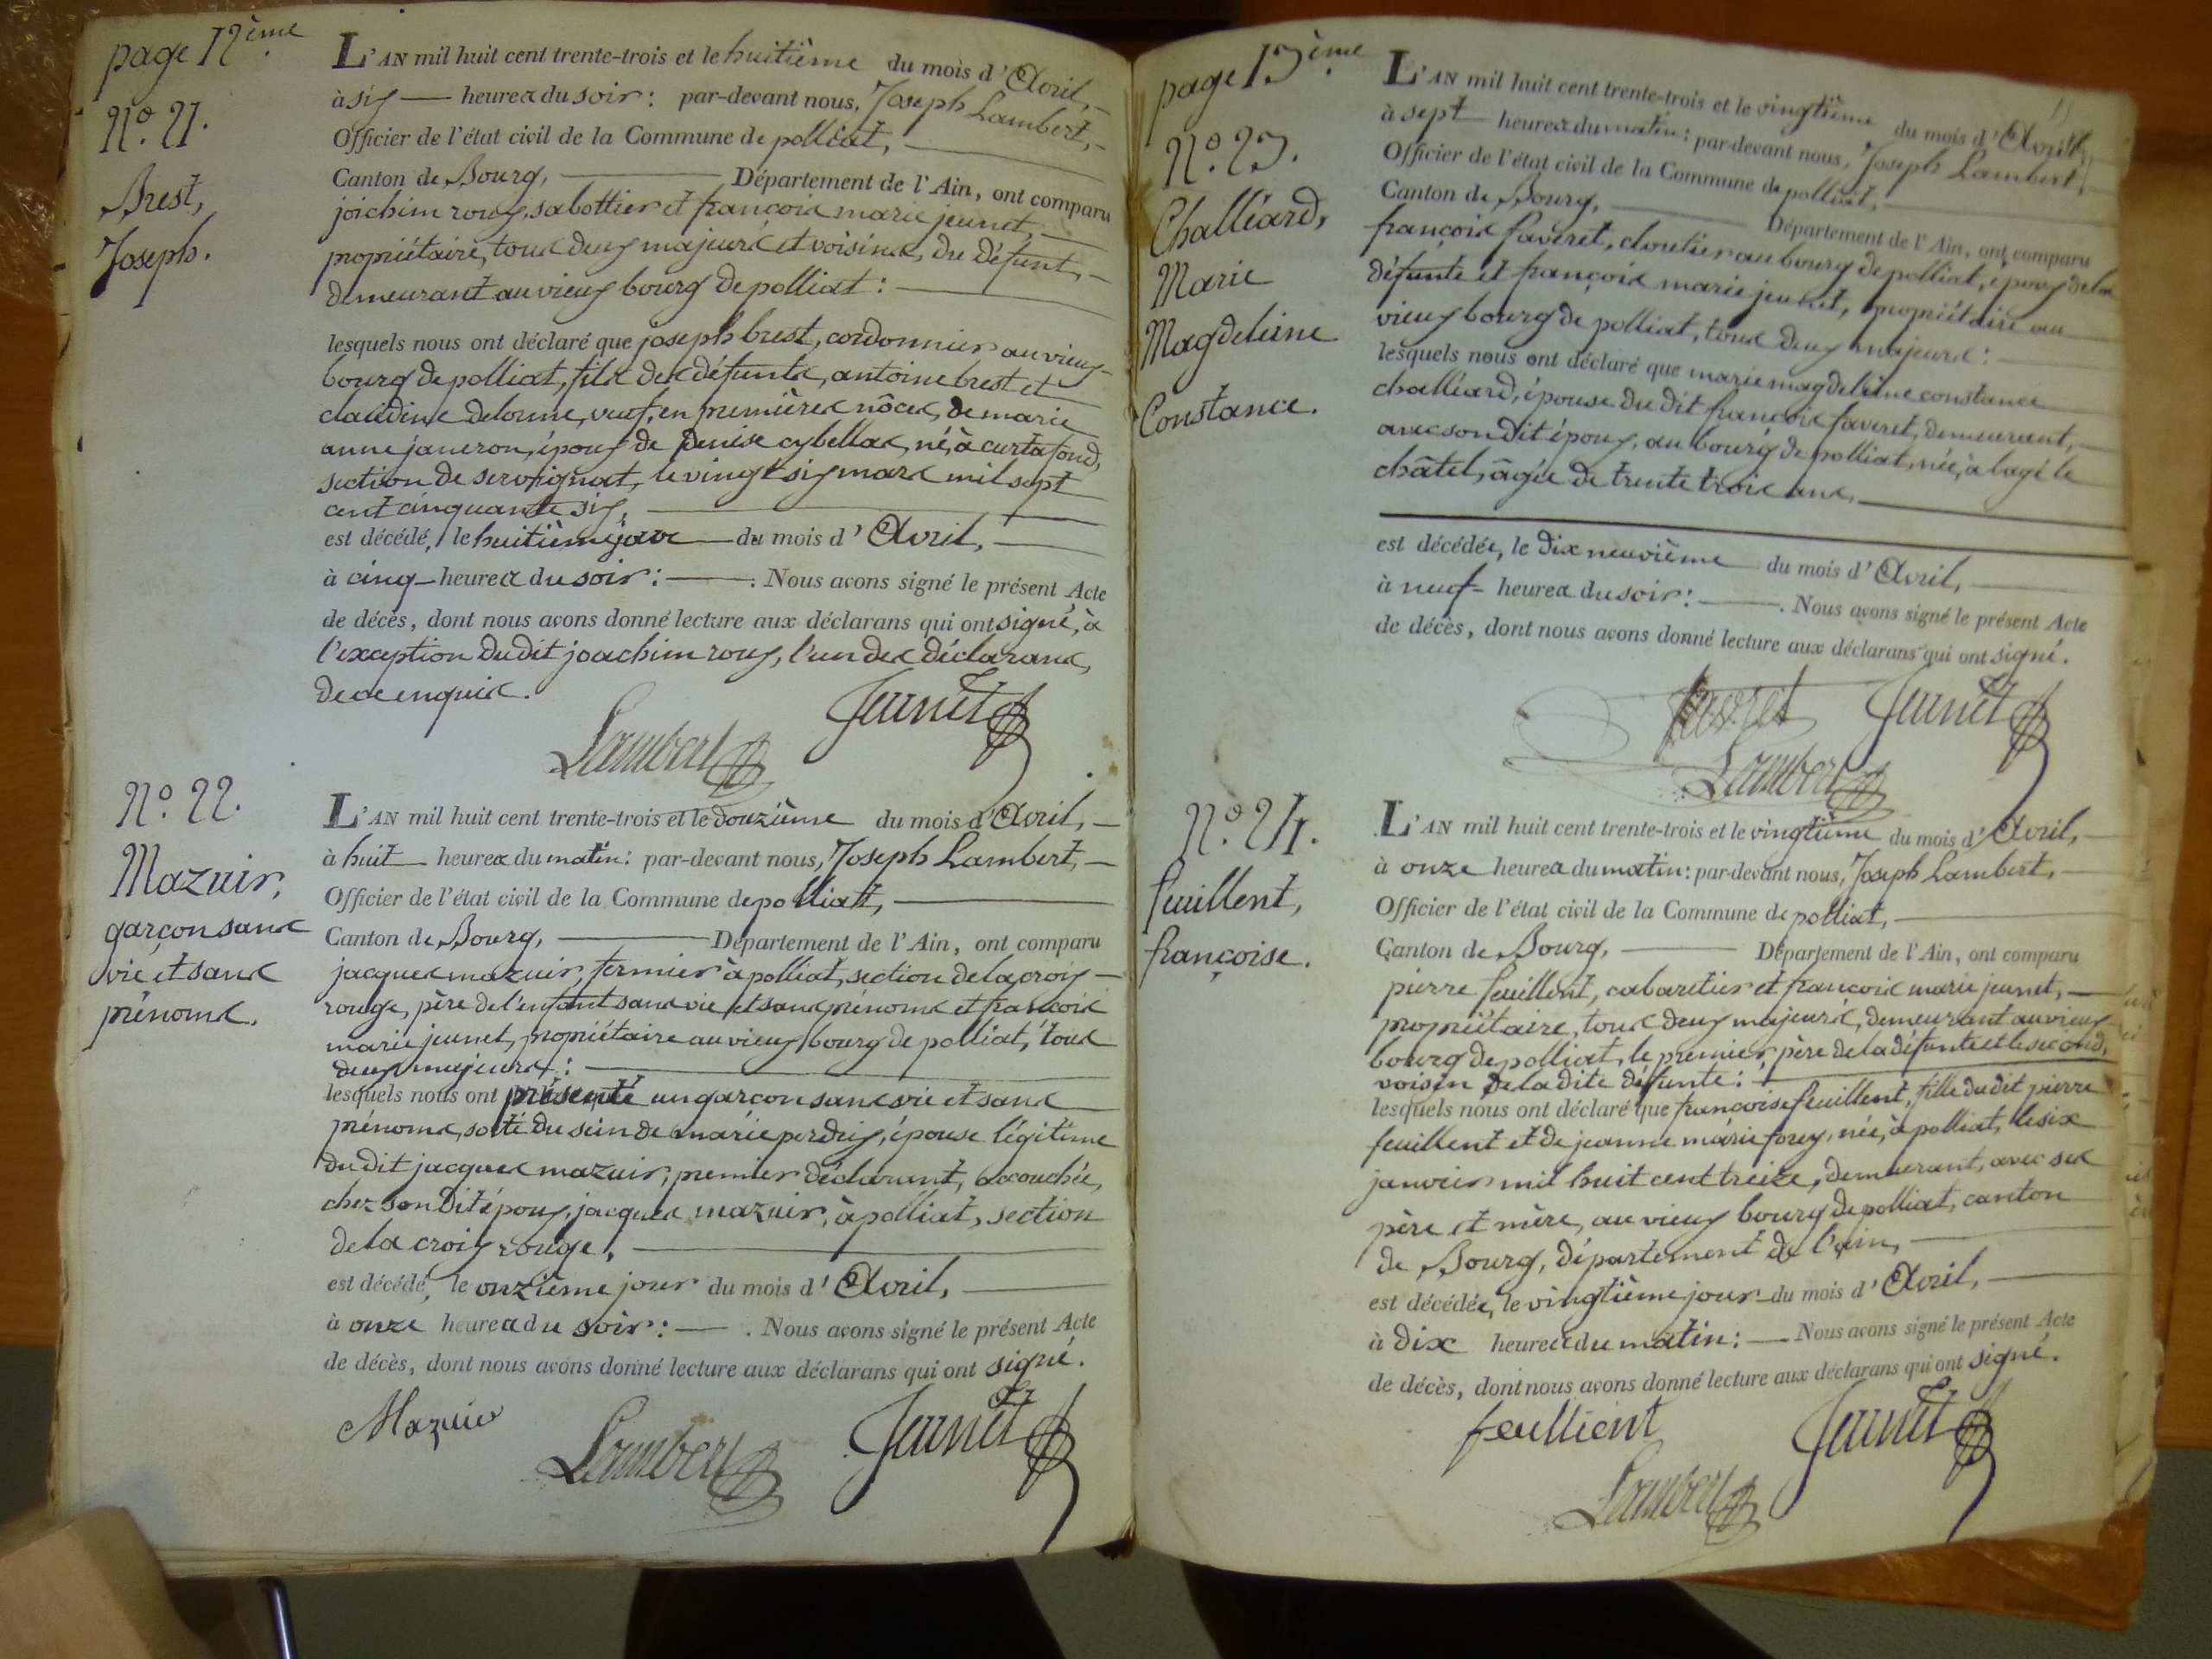 page 12ème
N.° 21.
Brest,
Joseph.
L'AN mil huit cent trente-trois et le huitième du mois d'Avril,
à six heures du soir : par-devant nous, Joseph Lambert,
Officier de l'état civil de la Commune de polliat,
Canton de Bourg, Département de l'Ain, ont comparu
joichim roux, sabottier et françois marie jeunet,
propriétaire, tous deux majeurs et voisins, du défunt,
demeurant au vieux bourg de polliat :
lesquels nous ont déclaré que joseph brest, cordonnier au vieux
bourg de polliat, fils des défunts, antoine brest et
claudine delorme, veuf, en premières nôces, de marie
anne janeron, époux de denise cybellas, né, à curtafond,
section de servignat, le vingt six mars mil sept
cent cinquante six,
est décédé, le huitième jour du mois d'Avril,
à cinq heures du soir : . Nous avons signé le présent Acte
de décès, dont nous avons donné lecture aux déclarans qui ont signé, à
l'exception du dit joachim roux, l'un des déclarans,
de ce enquis.
Lambert Jeunet
N.° 22.
Mazuir,
garçon sans
vie et sans
prénoms.
L'AN mil huit cent trente-trois et le douzième du mois d'Avril,
à huit heures du matin : par-devant nous, Joseph Lambert,
Officier de l'état civil de la Commune de polliat,
Canton de Bourg, Département de l'Ain, ont comparu
jacques mazuir, fermier à polliat, section de la croix
rouge, père de l'enfant sans vie et sans prénoms et françois
marie jeunet, propriétaire au vieux bourg de polliat, tous
deux majeurs :
lesquels nous ont présenté un garçon sans vie et sans
prénoms, sorti du sein de marie perdrix, épouse légitime
du dit jacques mazuir, premier déclarant, accouchée,
chez son dit époux, jacques mazuir, à polliat, section
de la croix rouge,
est décédé, le onzième jour du mois d'Avril,
à onze heures du soir : . Nous avons signé le présent Acte
de décès, dont nous avons donné lecture aux déclarans qui ont signé.
Mazuir Lambert Jeunet
page 13ème
N.° 23.
Challiard,
Marie
Magdeleine
Constance.
L'AN mil huit cent trente-trois et le vingtième du mois d'Avril,
à sept heures du matin : par-devant nous, Joseph Lambert,
Officier de l'état civil de la Commune de polliat,
Canton de Bourg, Département de l'Ain, ont comparu
françois faveret, cloutier au bourg de polliat, époux de la
défunte et françois marie jeunet, propriétaire au
vieux bourg de polliat, tous deux majeurs :
lesquels nous ont déclaré que marie magdeleine constance
challiard, épouse du dit françois faveret, demeurant,
avec son dit époux, au bourg de polliat, née, à bagé le
châtel, âgée de trente trois ans,
est décédée, le dix neuvième du mois d'Avril,
à neuf heures du soir : . Nous avons signé le présent Acte
de décès, dont nous avons donné lecture aux déclarans qui ont signé.
Jeunet
Lambert
N.° 24.
feuillent,
françoise.
L'AN mil huit cent trente-trois et le vingtième du mois d'Avril,
à onze heures du matin : par-devant nous, Joseph Lambert,
Officier de l'état civil de la Commune de polliat,
Canton de Bourg, Département de l'Ain, ont comparu
pierre feuillent, cabaretier et françois marie jeunet,
propriétaire, tous deux majeurs, demeurant au vieux
bourg de polliat, le premier, père de la défunte et le second,
voisin de la dite défunte :
lesquels nous ont déclaré que françoise feuillent, fille du dit pierre
feuillent et de jeanne marie forey, née, à polliat, le six
janvier mil huit cent treize, demeurant, avec ses
père et mère, au vieux bourg de polliat, canton
de Bourg, département de l'ain,
est décédée, le vingtième jour du mois d'Avril,
à dix heures du matin : Nous avons signé le présent Acte
de décès, dont nous avons donné lecture aux déclarans qui ont signé.
feullient Jeunet
Lambert